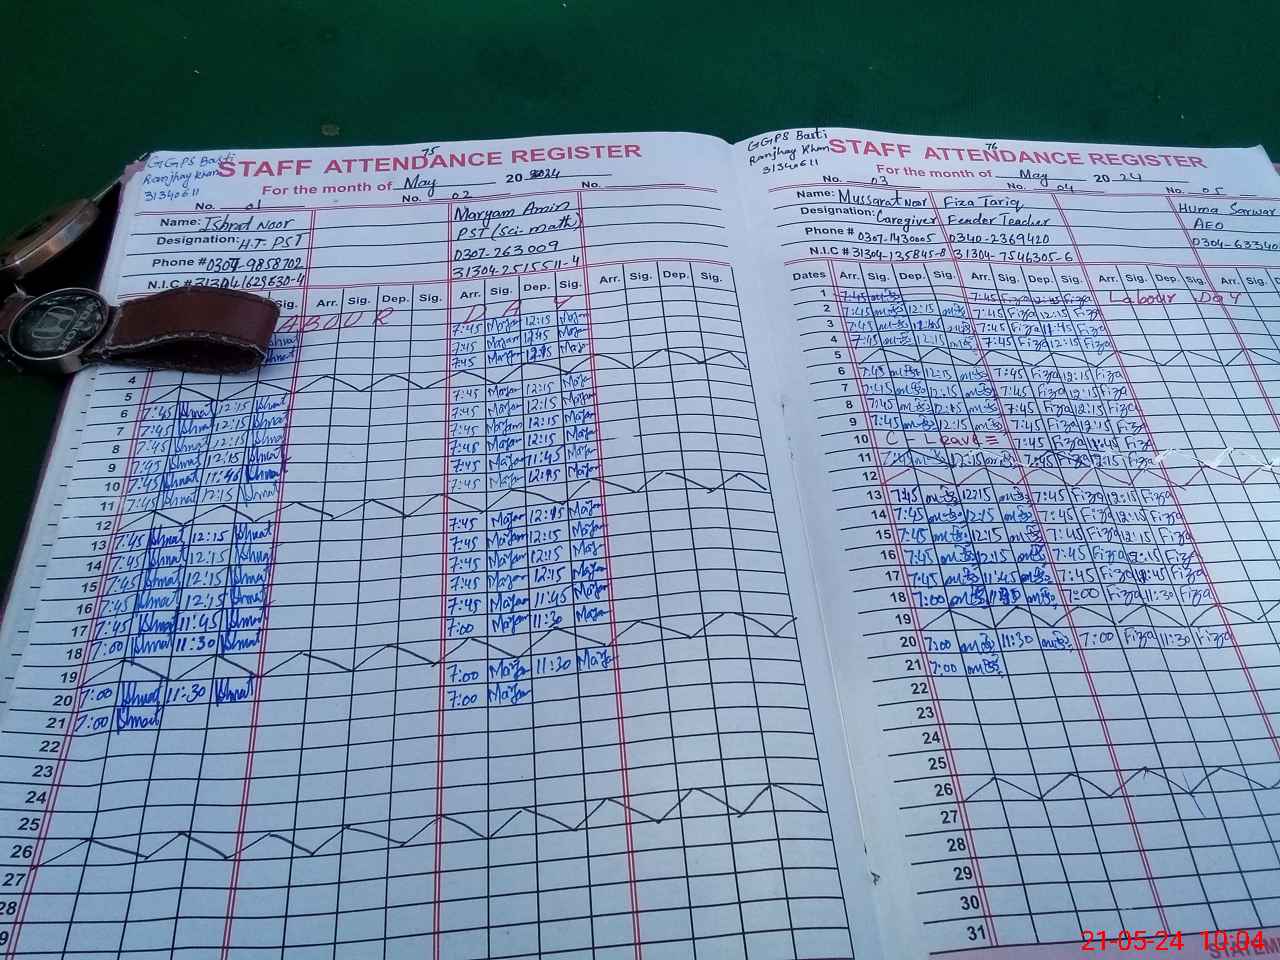 GGPS Basti
Ranjhay Khan
31340611
75
STAFF ATTENDANCE REGISTER
For the month of May 20 2024
No. 01 No. 02 No.
Name: Ishrat Noor
Designation: H.T. PST
Phone # 0304-9858702
N.I.C # 31304
Maryam Amin
PST (Sci-math)
0307-263009
31304-2515511-4
Sig. Arr. Sig. Dep. Sig. Arr. Sig. Dep. Sig. Arr. Sig. Dep. Sig.
LABOUR DAY
7:45 12:15
7:45 12:15
7:45 12:15
4
5
6 7:45 Ishrat 12:15 Ishrat 7:45 12:15
7 7:45 Ishrat 12:15 Ishrat 7:45 12:15
8 7:45 Ishrat 12:15 Ishrat 7:45 12:15
9 7:45 Ishrat 12:15 Ishrat 7:45 12:15
10 7:45 Ishrat 11:45 7:45 11:45
11 7:45 Ishrat 12:15 Ishrat 7:45 12:15
12
13 7:45 Ishrat 12:15 Ishrat 7:45 12:15
14 7:45 Ishrat 12:15 Ishrat 7:45 12:15
15 7:45 Ishrat 12:15 Ishrat 7:45 12:15
16 7:45 Ishrat 12:15 Ishrat 7:45 12:15
17 7:45 Ishrat 11:45 Ishrat 7:45 11:45
18 7:00 Ishrat 11:30 Ishrat 7:00 11:30
19
20 7:00 Ishrat 11:30 Ishrat 7:00 11:30
21 7:00 Ishrat 7:00
22
23
24
25
26
27
28
GGPS Basti
Ranjhay Khan
31340611
76
STAFF ATTENDANCE REGISTER
For the month of May 20 24
No. 03 No. 04 No. 05
Name: Mussarat Noor
Designation: Caregiver
Phone # 0307-1430005
N.I.C # 31304-125845-8
Fiza Tariq
Feader Teacher
0340-2369420
31304-7546305-6
Huma Sarwar
AEO
0304-63340
Dates Arr. Sig. Dep. Sig. Arr. Sig. Dep. Sig. Arr. Sig. Dep. Sig. Arr. Sig.
1 7:45 7:45 Fiza 12:15 Fiza Labour Day
2 7:45 12:15 7:45 Fiza 12:15 Fiza
3 7:45 7:45 Fiza 11:45 Fiza
4 7:45 12:15 7:45 Fiza 12:15 Fiza
5
6 7:45 12:15 7:45 Fiza 12:15 Fiza
7 7:45 12:15 7:45 Fiza 12:15 Fiza
8 7:45 12:15 7:45 Fiza 12:15 Fiza
9 7:45 12:15 7:45 Fiza 12:15 Fiza
10 C - Leave 7:45 Fiza 11:45 Fiza
11 7:45 12:15 7:45 Fiza Fiza
12
13 7:45 12:15 7:45 Fiza 12:15 Fiza
14 7:45 12:15 7:45 Fiza 12:15 Fiza
15 7:45 12:15 7:45 Fiza 12:15 Fiza
16 7:45 12:15 7:45 Fiza 12:15 Fiza
17 7:45 11:45 7:45 Fiza Fiza
18 7:00 7:00 Fiza 11:30 Fiza
19
20 7:00 11:30 7:00 Fiza 11:30 Fiza
21 7:00
22
23
24
25
26
27
28
29
30
31
21-05-24 10:04